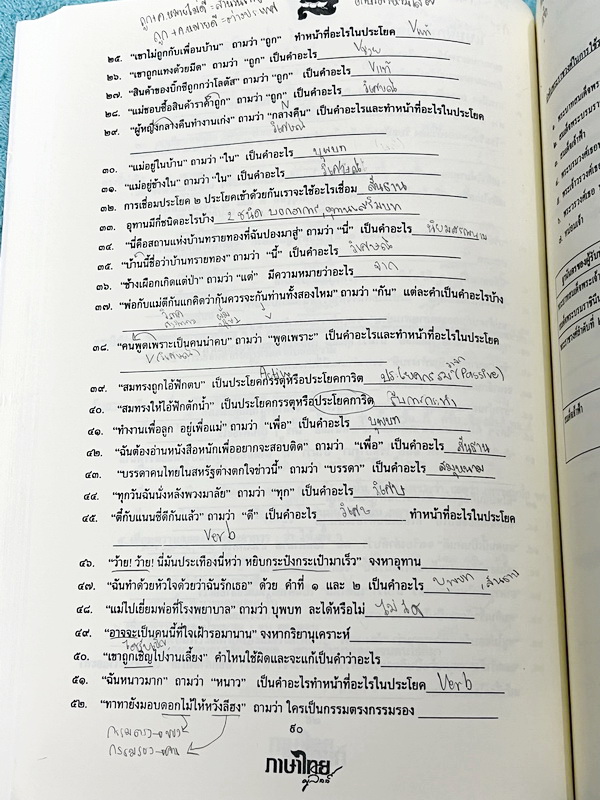 ๒๕. “เขาไม่ถูกกับเพื่อนบ้าน” ถามว่า “ถูก” ทำหน้าที่อะไรในประโยค Vแท้
๒๖. “เขาถูกแทงด้วยมีด” ถามว่า “ถูก” เป็นคำอะไร Vช่วย
๒๗. “สินค้าของบิ๊กซีถูกกว่าโลตัส” ถามว่า “ถูก” เป็นคำอะไร Vแท้
๒๘. “แม่ชอบซื้อสินค้าราคาถูก” ถามว่า “ถูก” เป็นคำอะไร วิเศษณ์
๒๙. “ผู้หญิงกลางคืนทำงานเก่ง” ถามว่า “กลางคืน” เป็นคำอะไรและทำหน้าที่อะไรในประโยค
วิเศษณ์
๓๐. “แม่อยู่ในบ้าน” ถามว่า “ใน” เป็นคำอะไร บุพบท
๓๑. “แม่อยู่ข้างใน” ถามว่า “ใน” เป็นคำอะไร วิเศษณ์
๓๒. การเชื่อมประโยค ๒ ประโยคเข้าด้วยกันเราจะใช้อะไรเชื่อม สันธาน
๓๓. อุทานมีกี่ชนิดอะไรบ้าง 2 ชนิด บอกอาการ, อุทานเสริมบท
๓๔. “นี่คือสถานแห่งบ้านทรายทองที่ฉันปองมาสู่” ถามว่า “นี่” เป็นคำอะไร นิยมสรรพนาม
๓๕. “บ้านนี้ชื่อว่าบ้านทรายทอง” ถามว่า “นี้” เป็นคำอะไร วิเศษณ์
๓๖. “ช้างเผือกเกิดแต่ป่า” ถามว่า “แต่” มีความหมายว่าอะไร จาก
๓๗. “พ่อกับแม่ตีกันแกคิดว่ากู้นควรจะกันท่านทั้งสองไหม” ถามว่า “กัน” แต่ละคำเป็นคำอะไรบ้าง
๓๘. “คนพูดเพราะเป็นคนน่าคบ” ถามว่า “พูดเพราะ” เป็นคำอะไรและทำหน้าที่อะไรในประโยค
๓๙. “สมทรงถูกไอ้ฟักตบ” เป็นประโยคกรรตุหรือประโยคการิต ประโยคกรรม (Passive)
๔๐. “สมทรงให้ไอ้ฟักตักน้ำ” เป็นประโยคกรรตุหรือประโยคการิต
๔๑. “ทำงานเพื่อลูก อยู่เพื่อแม่” ถามว่า “เพื่อ” เป็นคำอะไร บุพบท
๔๒. “ฉันต้องอ่านหนังสือหนักเพื่ออยากจะสอบติด” ถามว่า “เพื่อ” เป็นคำอะไร สันธาน
๔๓. “บรรดาคนไทยในสหรัฐต่างตกใจข่าวนี้” ถามว่า “บรรดา” เป็นคำอะไร สมุหนาม
๔๔. “ทุกวันฉันนั่งหลังพวงมาลัย” ถามว่า “ทุก” เป็นคำอะไร วิเศษ
๔๕. “ตี๋กับแนนซี่ดีกันแล้ว” ถามว่า “ดี” เป็นคำอะไร วิเศษ ทำหน้าที่อะไรในประโยค
Verb
๔๖. “ว้าย! ว้าย! นี่มันประเทืองนี่หว่า หยิบกระปังกระเป๋ามาเร็ว” จงหาอุทาน
๔๗. “ฉันทำด้วยหัวใจด้วยว่าฉันรักเธอ” ด้วย คำที่ ๑ และ ๒ เป็นคำอะไร บุพบท, สันธาน
๔๘. “แม่ไปเยี่ยมพ่อที่โรงพยาบาล” ถามว่า บุพบท ละได้หรือไม่ ไม่ได้
๔๙. “อาจจะเป็นคนนี้ที่ใจเฝ้ารอมานาน” จงหากริยานุเคราะห์
๕๐. “เขาถูกเชิญไปงานเลี้ยง” คำไหนใช้ผิดและจะแก้เป็นคำว่าอะไร
๕๑. “ฉันหนาวมาก” ถามว่า “หนาว” เป็นคำอะไรทำหน้าที่อะไรในประโยค Verb
๕๒. “ทาทายังมอบดอกไม้ให้หวังลีฮง” ถามว่า ใครเป็นกรรมตรงกรรมรอง
กรรมตรง-ของ
กรรมรอง-คน
๙๐
ภาษาไทย